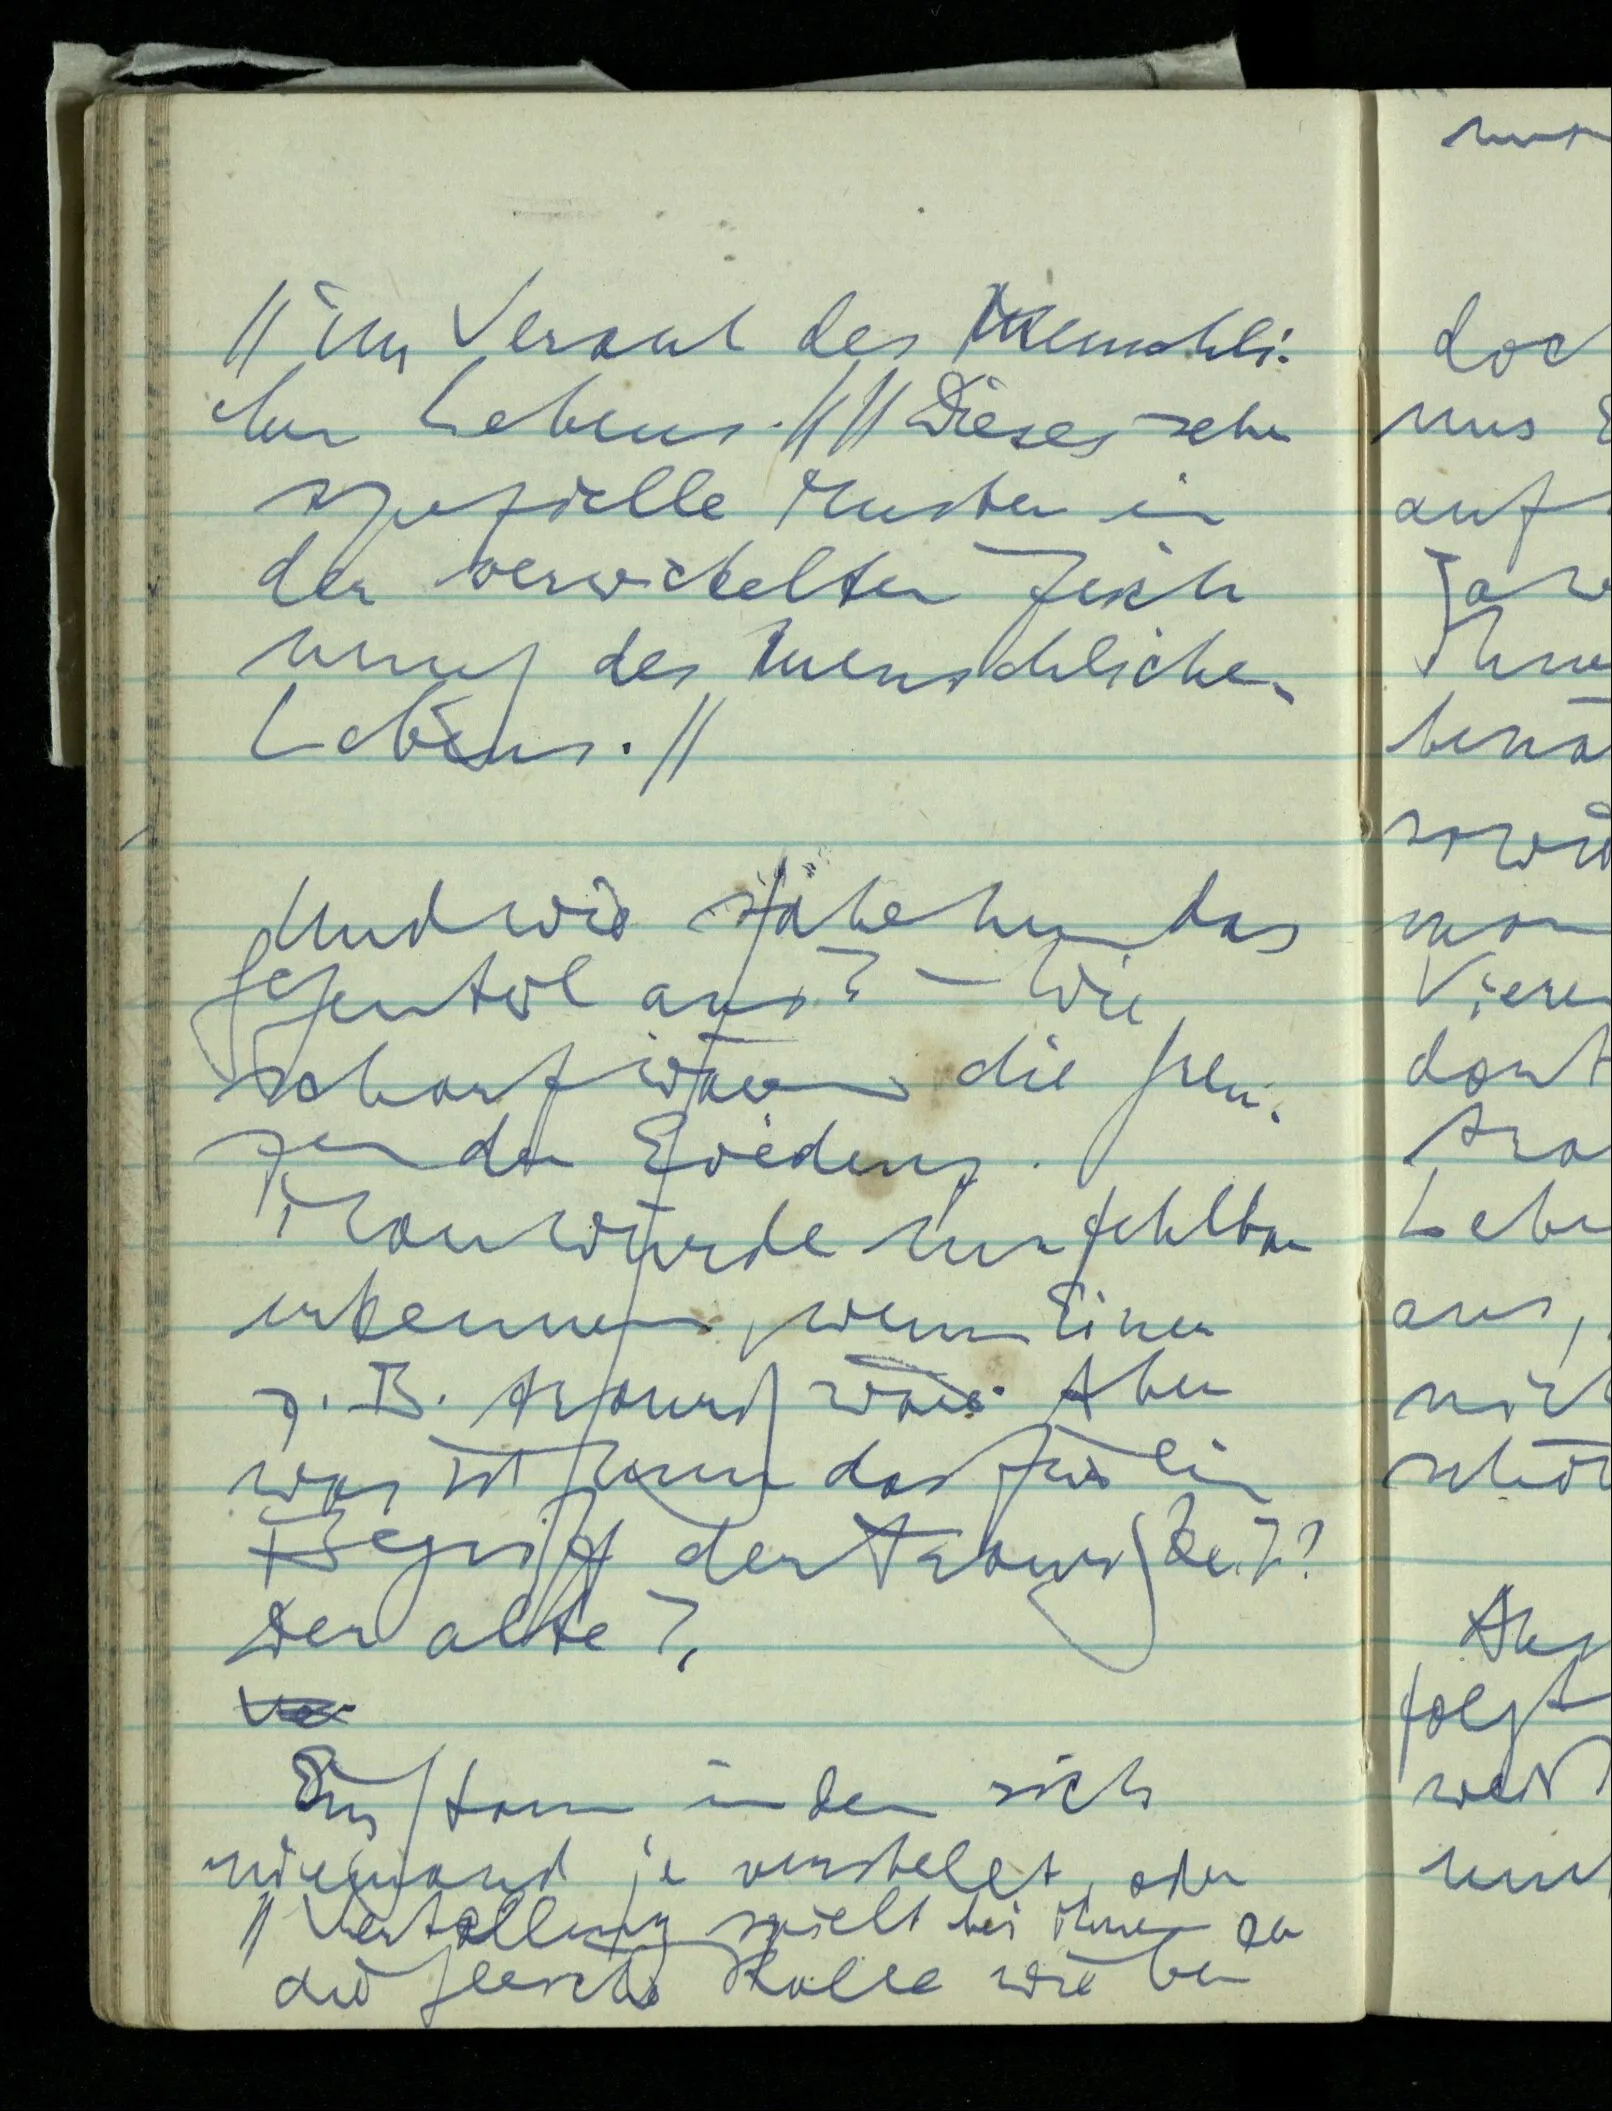 // im Verlauf des Menschli-
chen Lebens. // // Dieses sehr
spezielle Muster in
der verwickelten Zeich
nung des menschlichen
Lebens. //
Und wie sähe nun das
Gegenteil aus? – Wie
scharf wären die Gren-
zen der Evidenz.
Man würde unfehlbar
erkennen, wenn Einer
z. B. traurig wäre. Aber
was ist nun das für ein
Begriff der Traurigkeit?
Der alte?
Ein Stamm in dem sich
niemand je verstellt, oder
// Verstellung spielt bei ihnen
die gleiche Rolle wie bei
doc
uns
auf
wan
Viere
dort
Lebe
aus,
nich
folgt
weit